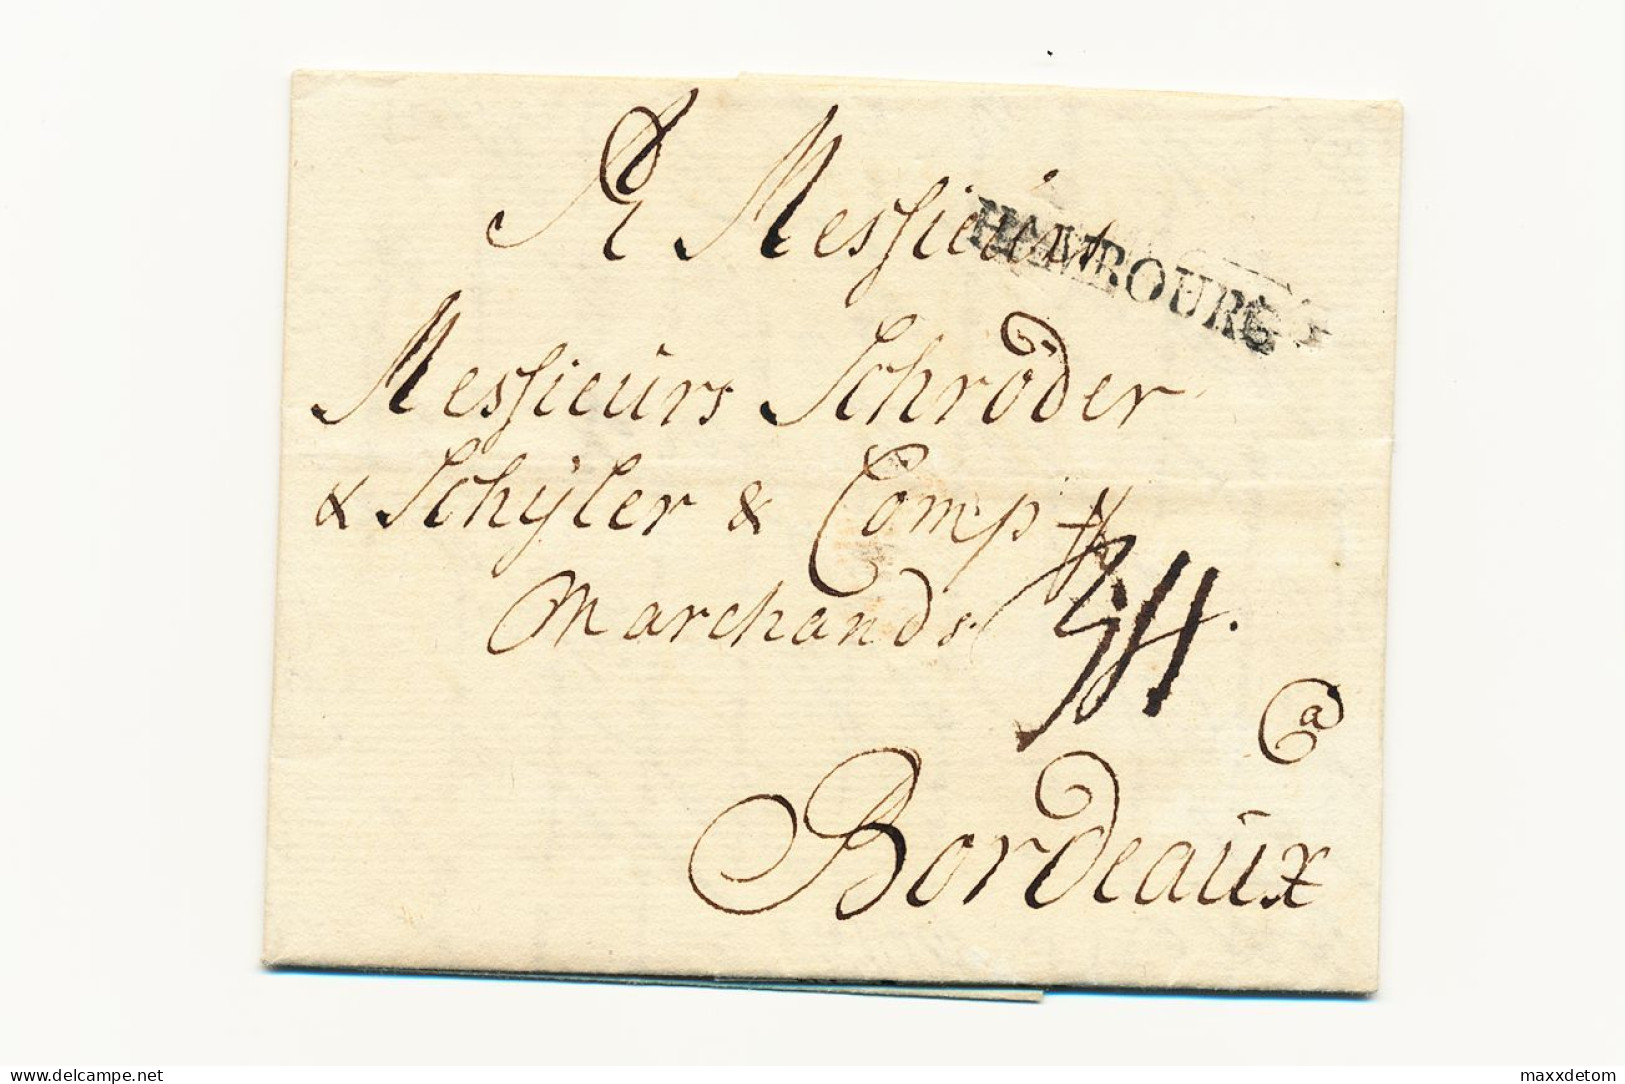 A Messieurs
HAMBOURG
Messieurs Schröder
& Schÿler & Comp
Marchands
34.
a
Bordeaüx
www.delcampe.net
maxxdetom